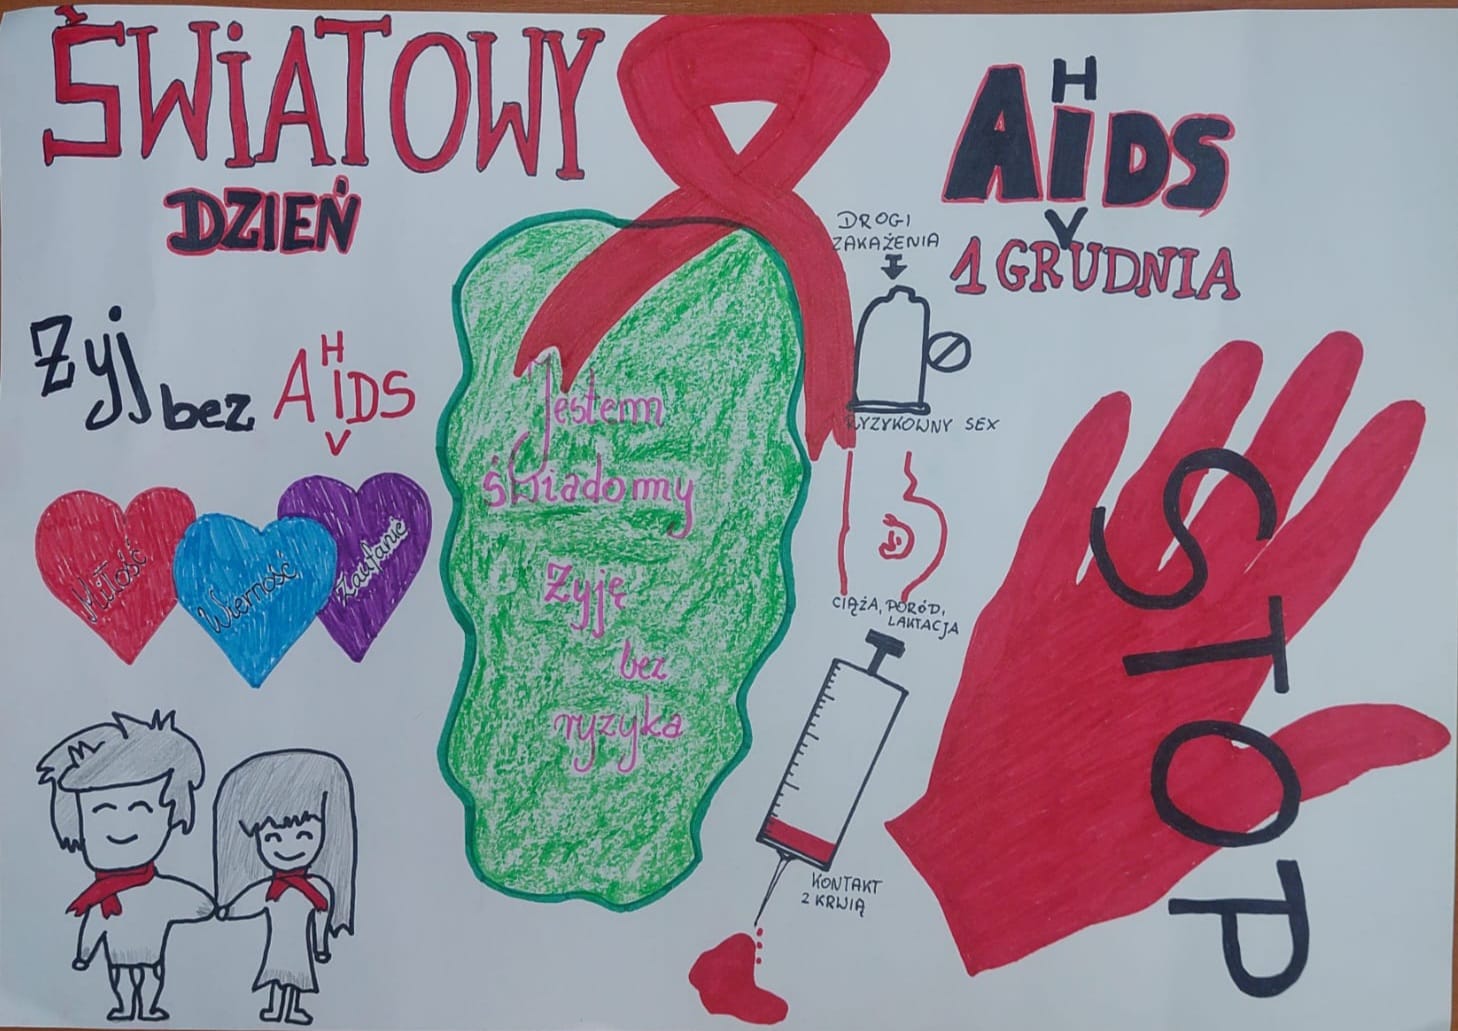 ŚWiATOWY
DZIEŃ
AiDS
H
V
1 GRUDNIA
Żyj bez AiDS
H
V
Miłość
Wierność
Zaufanie
Jestem
świadomy
Żyję
bez
ryzyka
DROGI
ZAKAŻENIA
RYZYKOWNY SEX
CIĄŻA, PORÓD,
LAKTACJA
KONTAKT
Z KRWIĄ
STOP